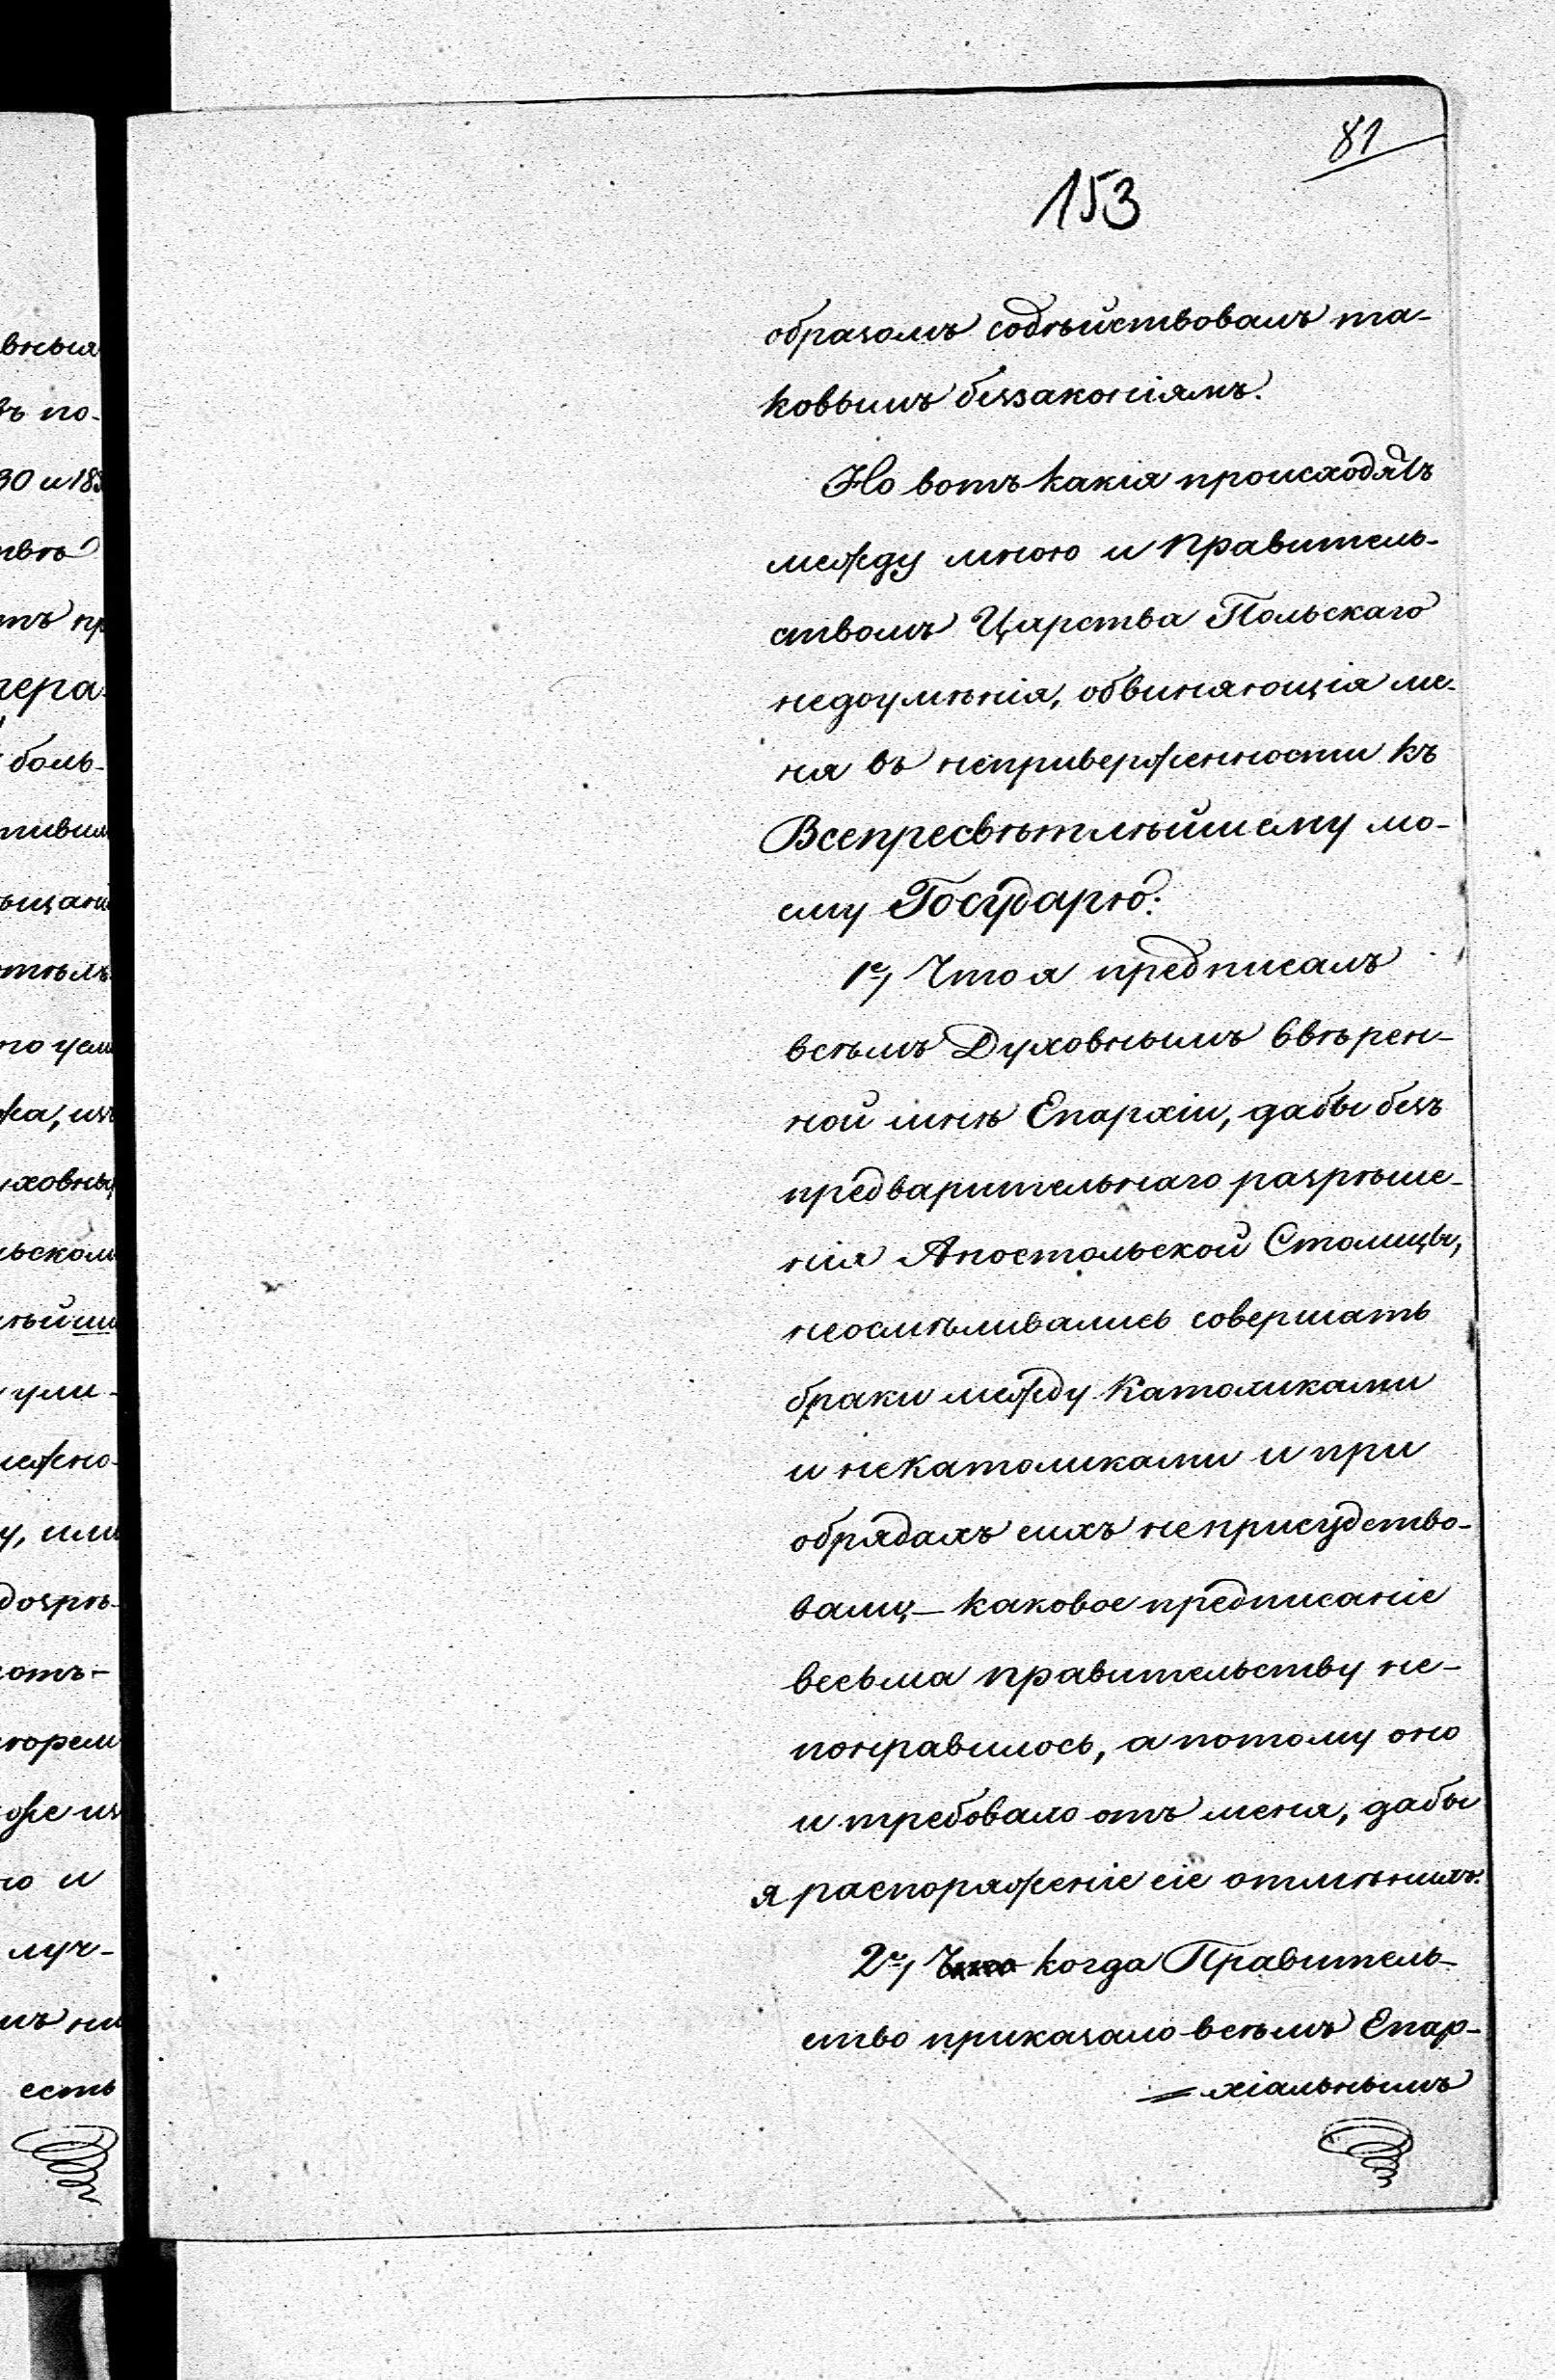 81
153
образомъ содѣйствовалъ та-
ковымъ беззаконіямъ.
Но вотъ какія происходятъ
между мною и правитель-
ствомъ Царства Польскаго
недоумѣнія, обвиняющія ме-
ня въ неприверженности къ
Всепресвѣтлѣйшему мо-
ему Государю:
1е, Что я предписалъ
всѣмъ Духовнымъ ввѣрен-
ной мнѣ Епархіи, дабы безъ
предварительнаго разрѣше-
нія Апостольской Столицы,
неосмѣливались совершать
браки между Католиками
и некатоликами и при
обрядахъ сихъ неприсудство-
вали,— каковое предписаніе
весьма правительству не-
понравилось, а потому оно
и требовало отъ меня, дабы
я распоряженіе сіе отмѣнилъ.
2е, Что когда Правитель-
ство приказало всѣмъ Епар-
= хіальнымъ
вныя
въ по-
30 и 183
боль-
уховны
ули-
у, или
ю и
луч-
есть